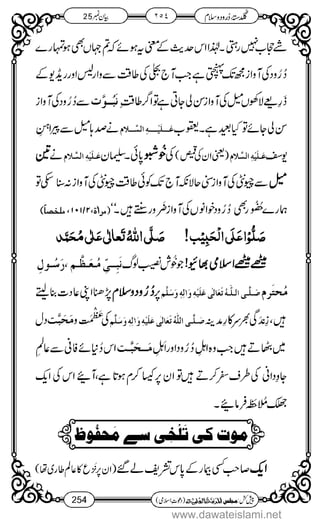 گلدستۂ دُرُود و سلام ٢٥٤ بیان نمبر 25
شے حجاب نہیں رہتی۔ لہٰذا اِس حدیث کے معنٰی یہ ہوئے کہ تم جہاں بھی ہو تمہارے
دُرُود کی آواز مجھ تک پہنچتی ہے جب آج بجلی کی طاقت سے وائرلیس اور ریڈیو کے
ذَرِیعے لاکھوں میل کی آواز سُن لی جاتی ہے تو اگر طاقتِ نُبُوَّت سے دُرُود کی آواز
سُن لی جائے تو کیا بعید ہے۔ یعقوب عَلَیْہِ السَّلَام نے صدہا میل سے پیراہنِ
یوسف عَلَیْہِ السَّلَام (یعنی ان کی قمیص) کی خوشبو پائی۔ سلیمان عَلَیْہِ السَّلَام نے تین
میل سے چیونٹی کی آواز سُنی حالانکہ آج تک کوئی طاقت چیونٹی کی آواز نہ سُنا سکی تو
ہمارے حُضُور بھی دُرُود خوانوں کی آواز ضَرور سنتے ہیں۔‘‘ (مراٰۃ، ۲/۱۰۱، ملخصاً)
صَلُّوْا عَلَی الْحَبِیْب! صَلَّی اللّٰہُ تَعَالٰی عَلٰی مُحَمَّد
میٹھے میٹھے اسلامی بھائیو! جو خوش نصیب لوگ نبیِّ مُعَظَّم، رَسُولِ
مُحتَرم صَلَّی اللّٰہُ تَعَالٰی عَلَیْہِ وَاٰلِہٖ وَسَلَّم پر دُرُود و سلام پڑھنا اپنی عادت بنا لیتے
ہیں، زِنْدگی بھر سرکارِ مدینہ صَلَّی اللّٰہُ تَعَالٰی عَلَیْہِ وَاٰلِہٖ وَسَلَّم کی عَظَمت و مَحَبَّت دل
میں بٹھاتے ہیں جب وہ اہلِ دُرُود اور اہلِ مَحَبَّت اس دُنیائے فانی سے عالَمِ
جاودانی کی طرف سفر کرتے ہیں تو ان پر کیسا کرم ہوتا ہے، آئیے اس کی ایک
جھلک مُلاحَظہ فرمائیے۔
موت کی تَلْخی سے مَحفُوظ
ایک صاحب کسی بیمار کے پاس تشریف لے گئے (ان پر نَزْع کا عالَم طاری تھا)
254
www.dawateislami.net